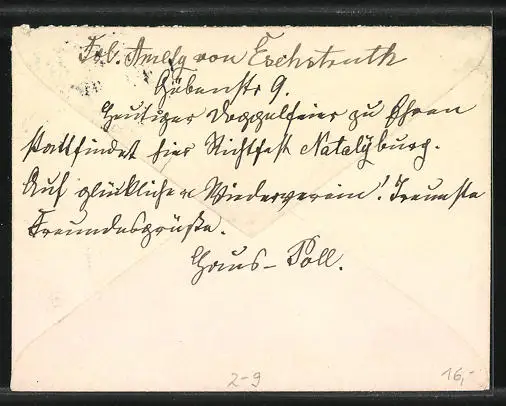 Frl. Amély von Eschstruth
Göbenstr 9.
Heutiger Doppelfeier zu Ehren
stattfindet hier Richtfest Natalyburg.
Auf glückliches Wiederverein! Treueste
Freundesgrüße.
Haus-Poll.
2-9
16,-